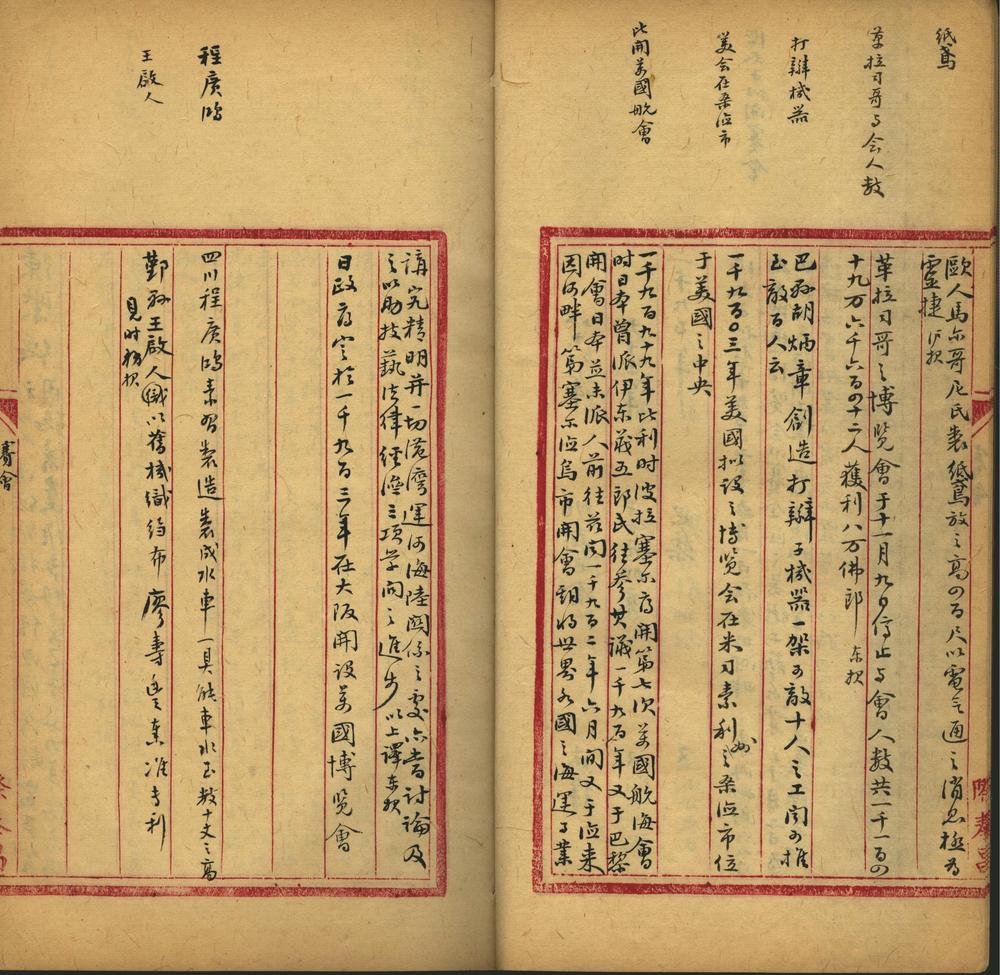 紙鳶
歐人馬尔哥尼氏製紙鳶放之高四百尺以電气通之消息極為
靈捷 滬报
革拉司哥与会人数
革拉司哥之博覧會于十一月九日停止与會人数共一千一百四
十九万六千六百四十二人獲利八万佛郎 东报
打辮機器
巴孙胡炳章創造打辮子機器一架可敵十人之工聞可推
至敵百人云
美会在桑盧市
一千九百〇三年美國拟设之博覧会在米司素利州之桑盧市位
于美國之中央
比開萬國航會
一千九百九十九年比利时波拉塞尔府開第七次萬國航海會
时日本曾派伊东義五郎氏往参其議一千九百年又于巴黎
開會日本並未派人前往兹聞一千九百二年六月間又于盧来
因河畔第塞尔盧烏市開會講将世界各國之海運事業
講究精明并一切港湾運河海陸関係之處亦皆討論及
之以助技藝法律経濟三項学问之進步 以上譯东报
日政府定於一千九百三年在大阪開設萬國博覧會
程廣鴻
四川程廣鴻素習製造製成水車一具能車水至数十丈之高
王啟人
鄞孙王啟人職以舊機織绉布 廖壽豐奏准专利
見时務报
賽會